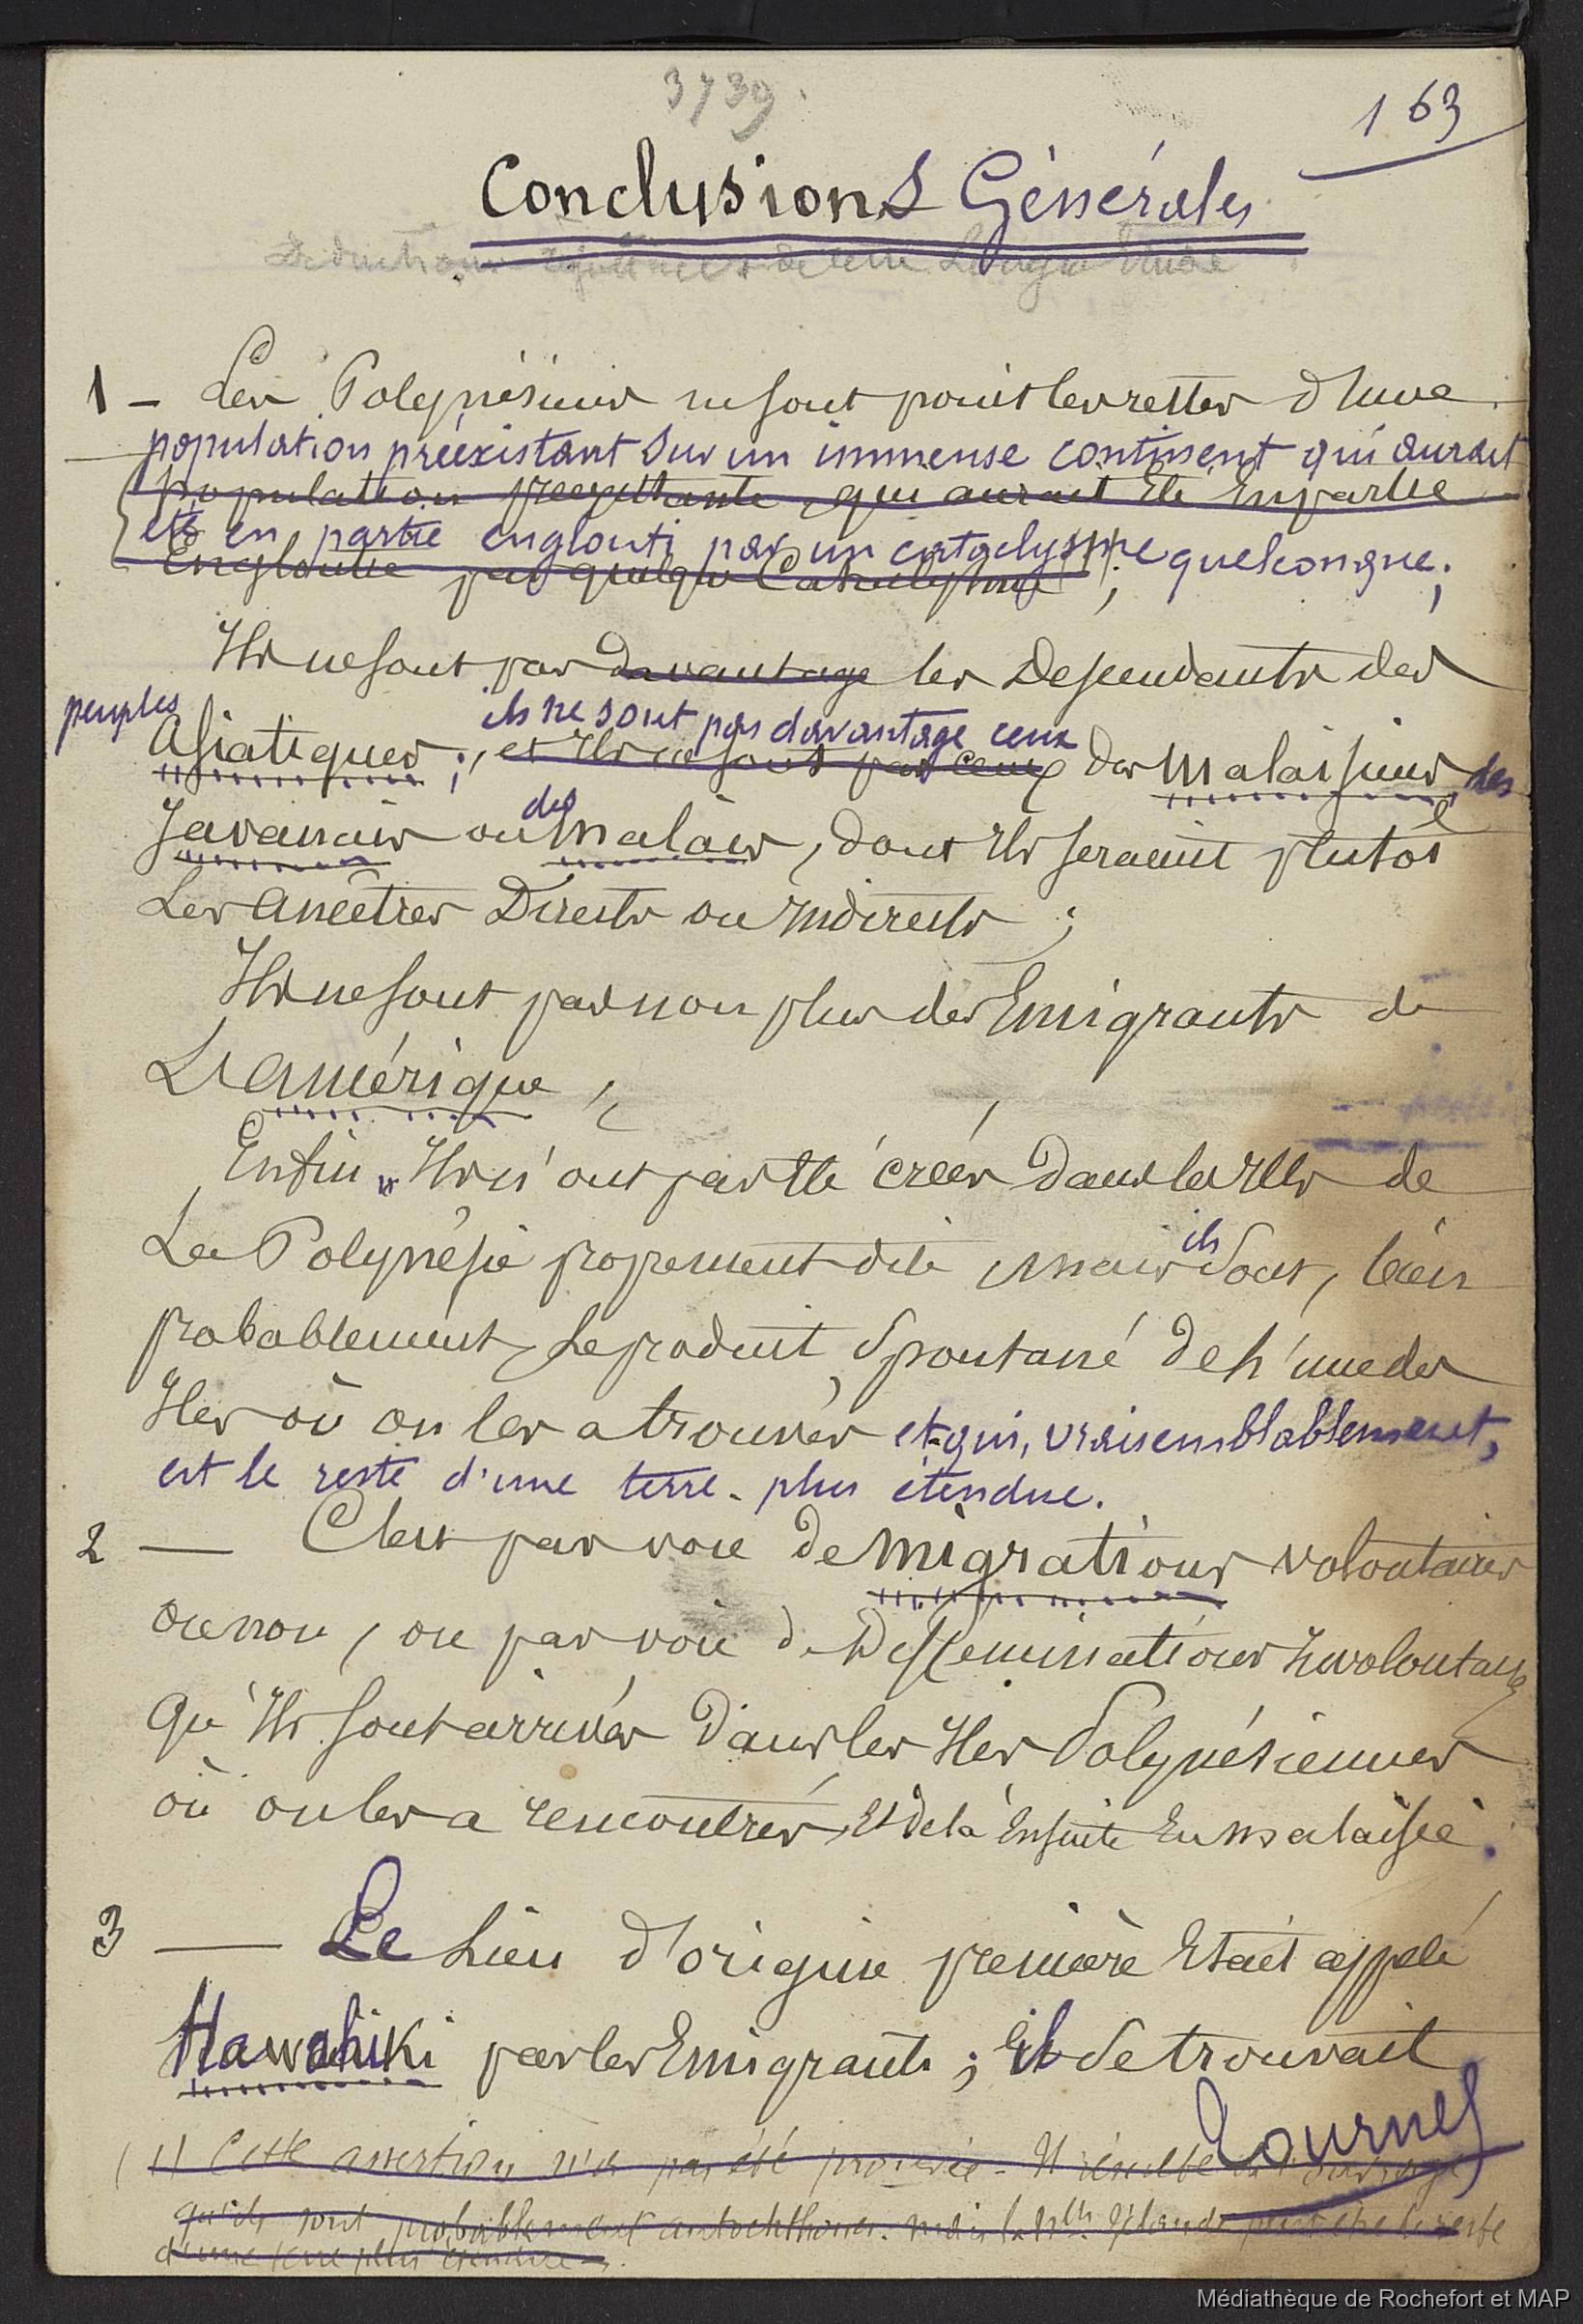 3739
163
Conclusions Générales
Déductions de cette Longue Etude
1 – Les Polynésiens ne sont point les restes d'une
population préexistant sur un immense continent qui aurait
population preexistante, qui aurait Eté En partie
été en partie englouti par un cataclysme quelconque;
Engloutie par quelque Cataclysme ;
Ils ne sont pas davantage les Descendants des
peuples
ils ne sont pas davantage ceux
Asiatiques ; et Ils ne sont pas ceux des Malaisiens, des
des
Javanais ou Malais, dont Ils seraient plutôt
Les Ancêtres Directs ou Indirects ;
Ils ne sont pas non plus des Emigrants de
L'Amérique ;
Enfin Ils n'ont pas Eté créés dans les Iles de
ils
La Polynésie proprement dite mais sont, bien
probablement, Le produit Spontané de L'une des
Iles où on les a trouvés et qui, vraisemblablement,
est le reste d'une terre plus étendue.
2 — C'est par voie de Migrations volontaires
ou non, ou par voie de Disseminations Involontaires
qu'Ils sont arrivés dans les Iles Polynésiennes
où on les a rencontrés, Et de là Ensuite En Malaisie.
3 — Le Lieu d'origine première Etait appelé
Hawahiki par les Emigrants ; il se trouvait
Tournez
(1) Cette assertion n'a pas été prouvée - Il résulte de l'ouvrage
qu'ils sont probablement autochthones. mais la Nlle Zélande peut être le reste
d'une terre plus étendue.
Médiathèque de Rochefort et MAP